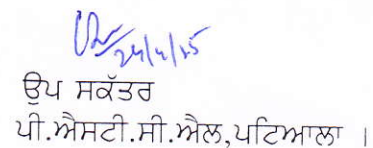 24/4/15
ਉਪ ਸਕੱਤਰ
ਪੀ.ਐਸਟੀ.ਸੀ.ਐਲ,ਪਟਿਆਲਾ ।